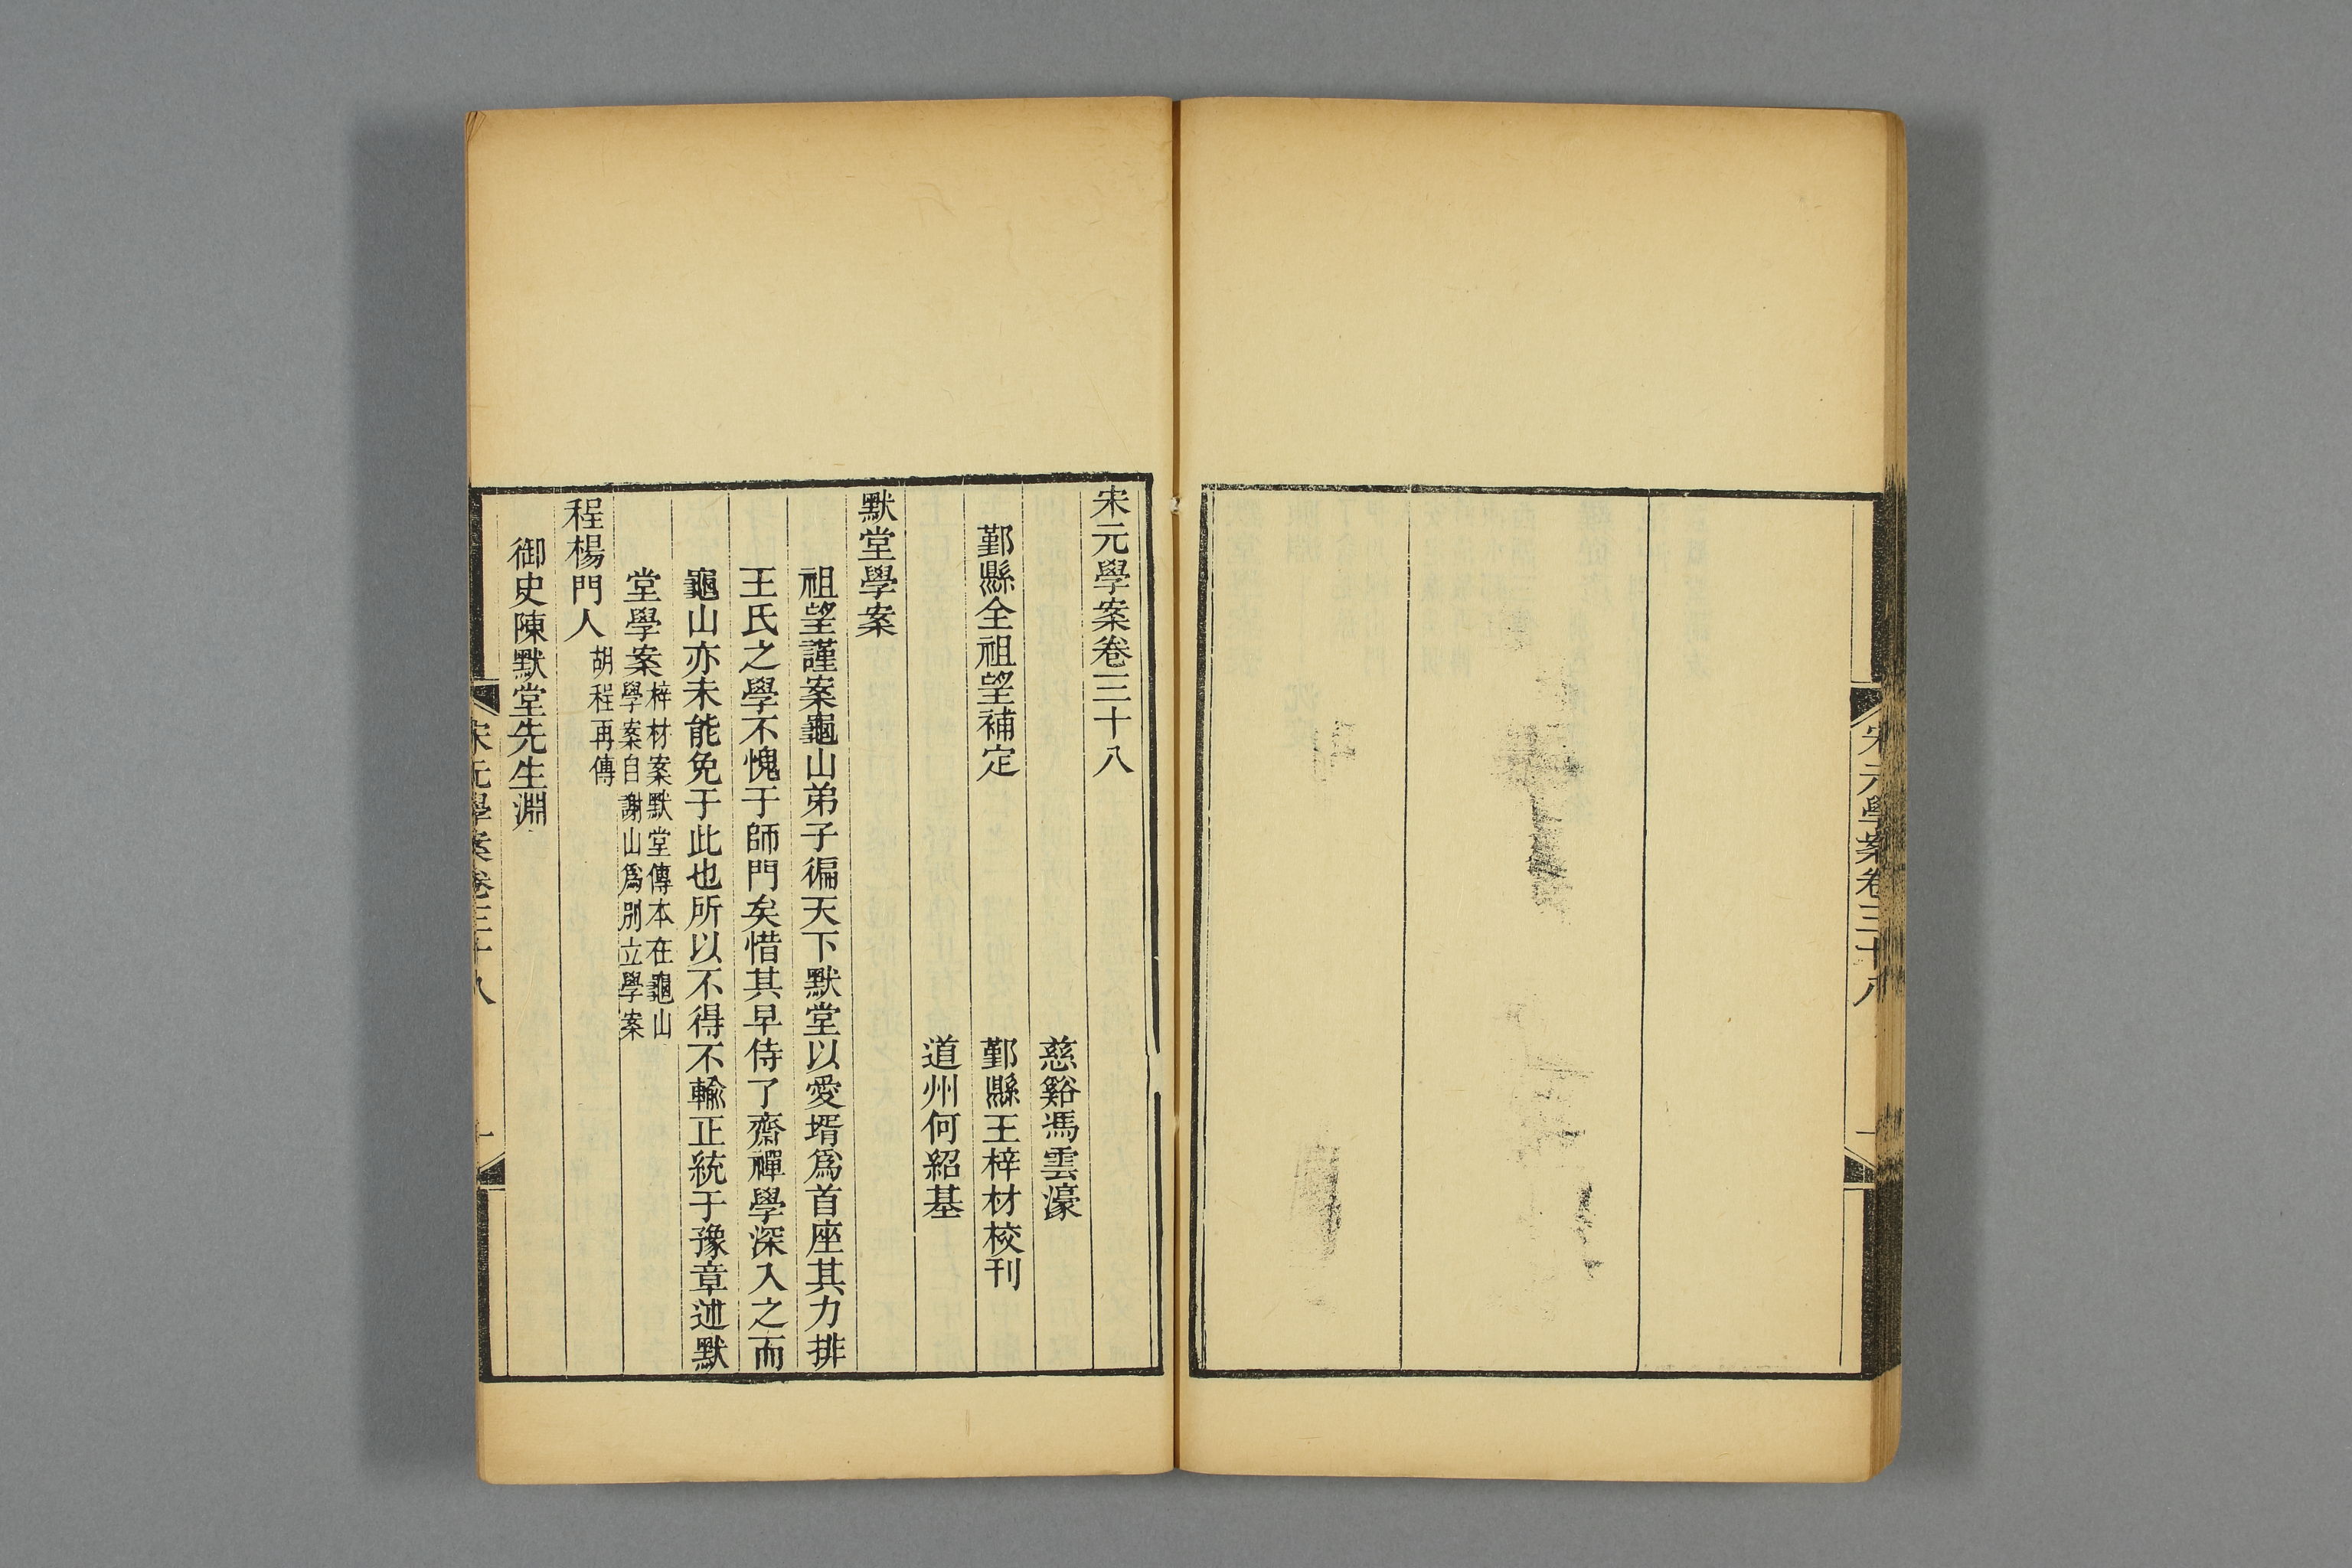 宋元學案卷三十八
宋元學案卷三十八
慈谿馮雲濠
鄞縣全祖望補定
鄞縣王梓材校刊
道州何紹基
默堂學案
祖望謹案龜山弟子徧天下默堂以愛壻爲首座其力排
王氏之學不愧于師門矣惜其早侍了齋禪學深入之而
龜山亦未能免于此也所以不得不輸正統于豫章述默
堂學案
梓材案默堂傳本在龜山
學案自謝山爲別立學案
程楊門人
胡程再傳
御史陳默堂先生淵
宋元學案卷三十八